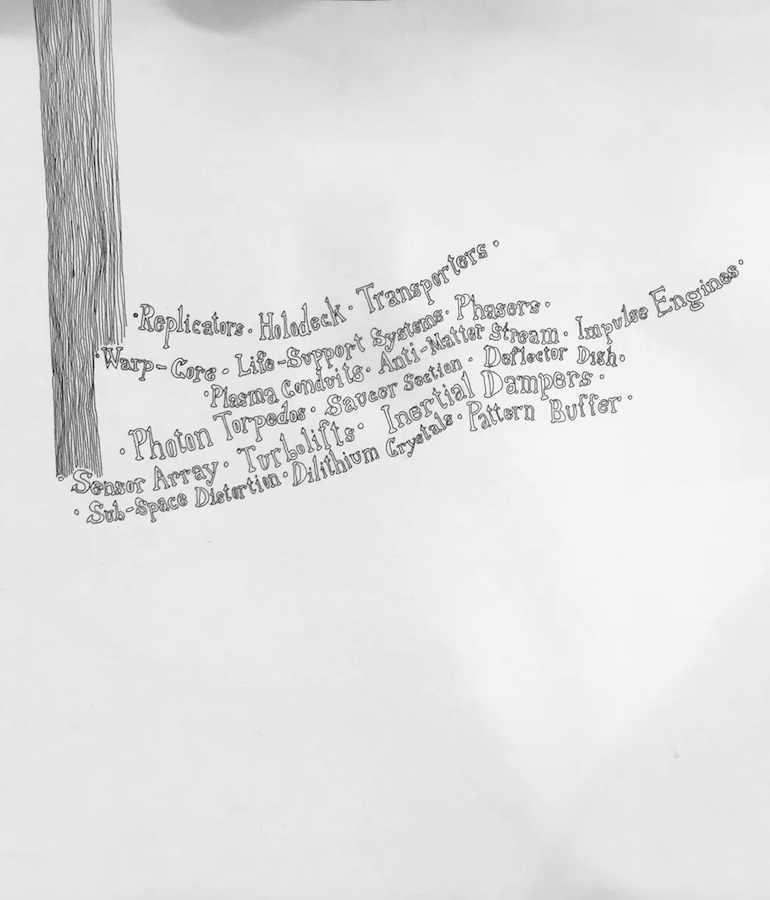 ·Replicators· Holodeck· Transporters·
·Warp-Core· Life-Support Systems· Phasers·
·Plasma Conduits· Anti-Matter Stream· Impulse Engines·
·Photon Torpedos· Saucer Section· Deflector Dish·
Sensor Array· Turbolifts· Inertial Dampers·
·Sub-Space Distortion·Dilithium Crystals·Pattern Buffer·